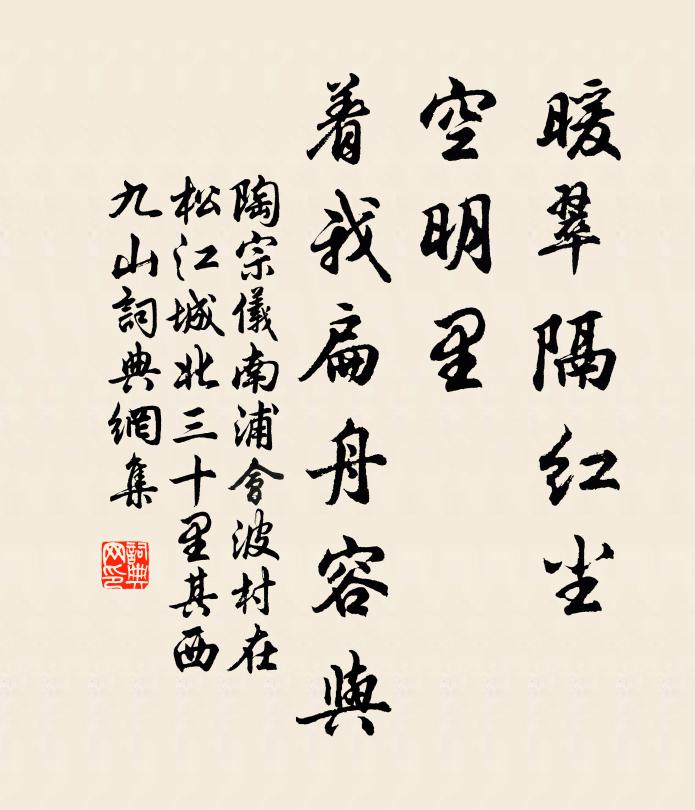 暖翠隔红尘
空明里
着我扁舟容與
陶宗儀南浦會波村在
松江城北三十里其西
九山詞典網集
詞典
网印